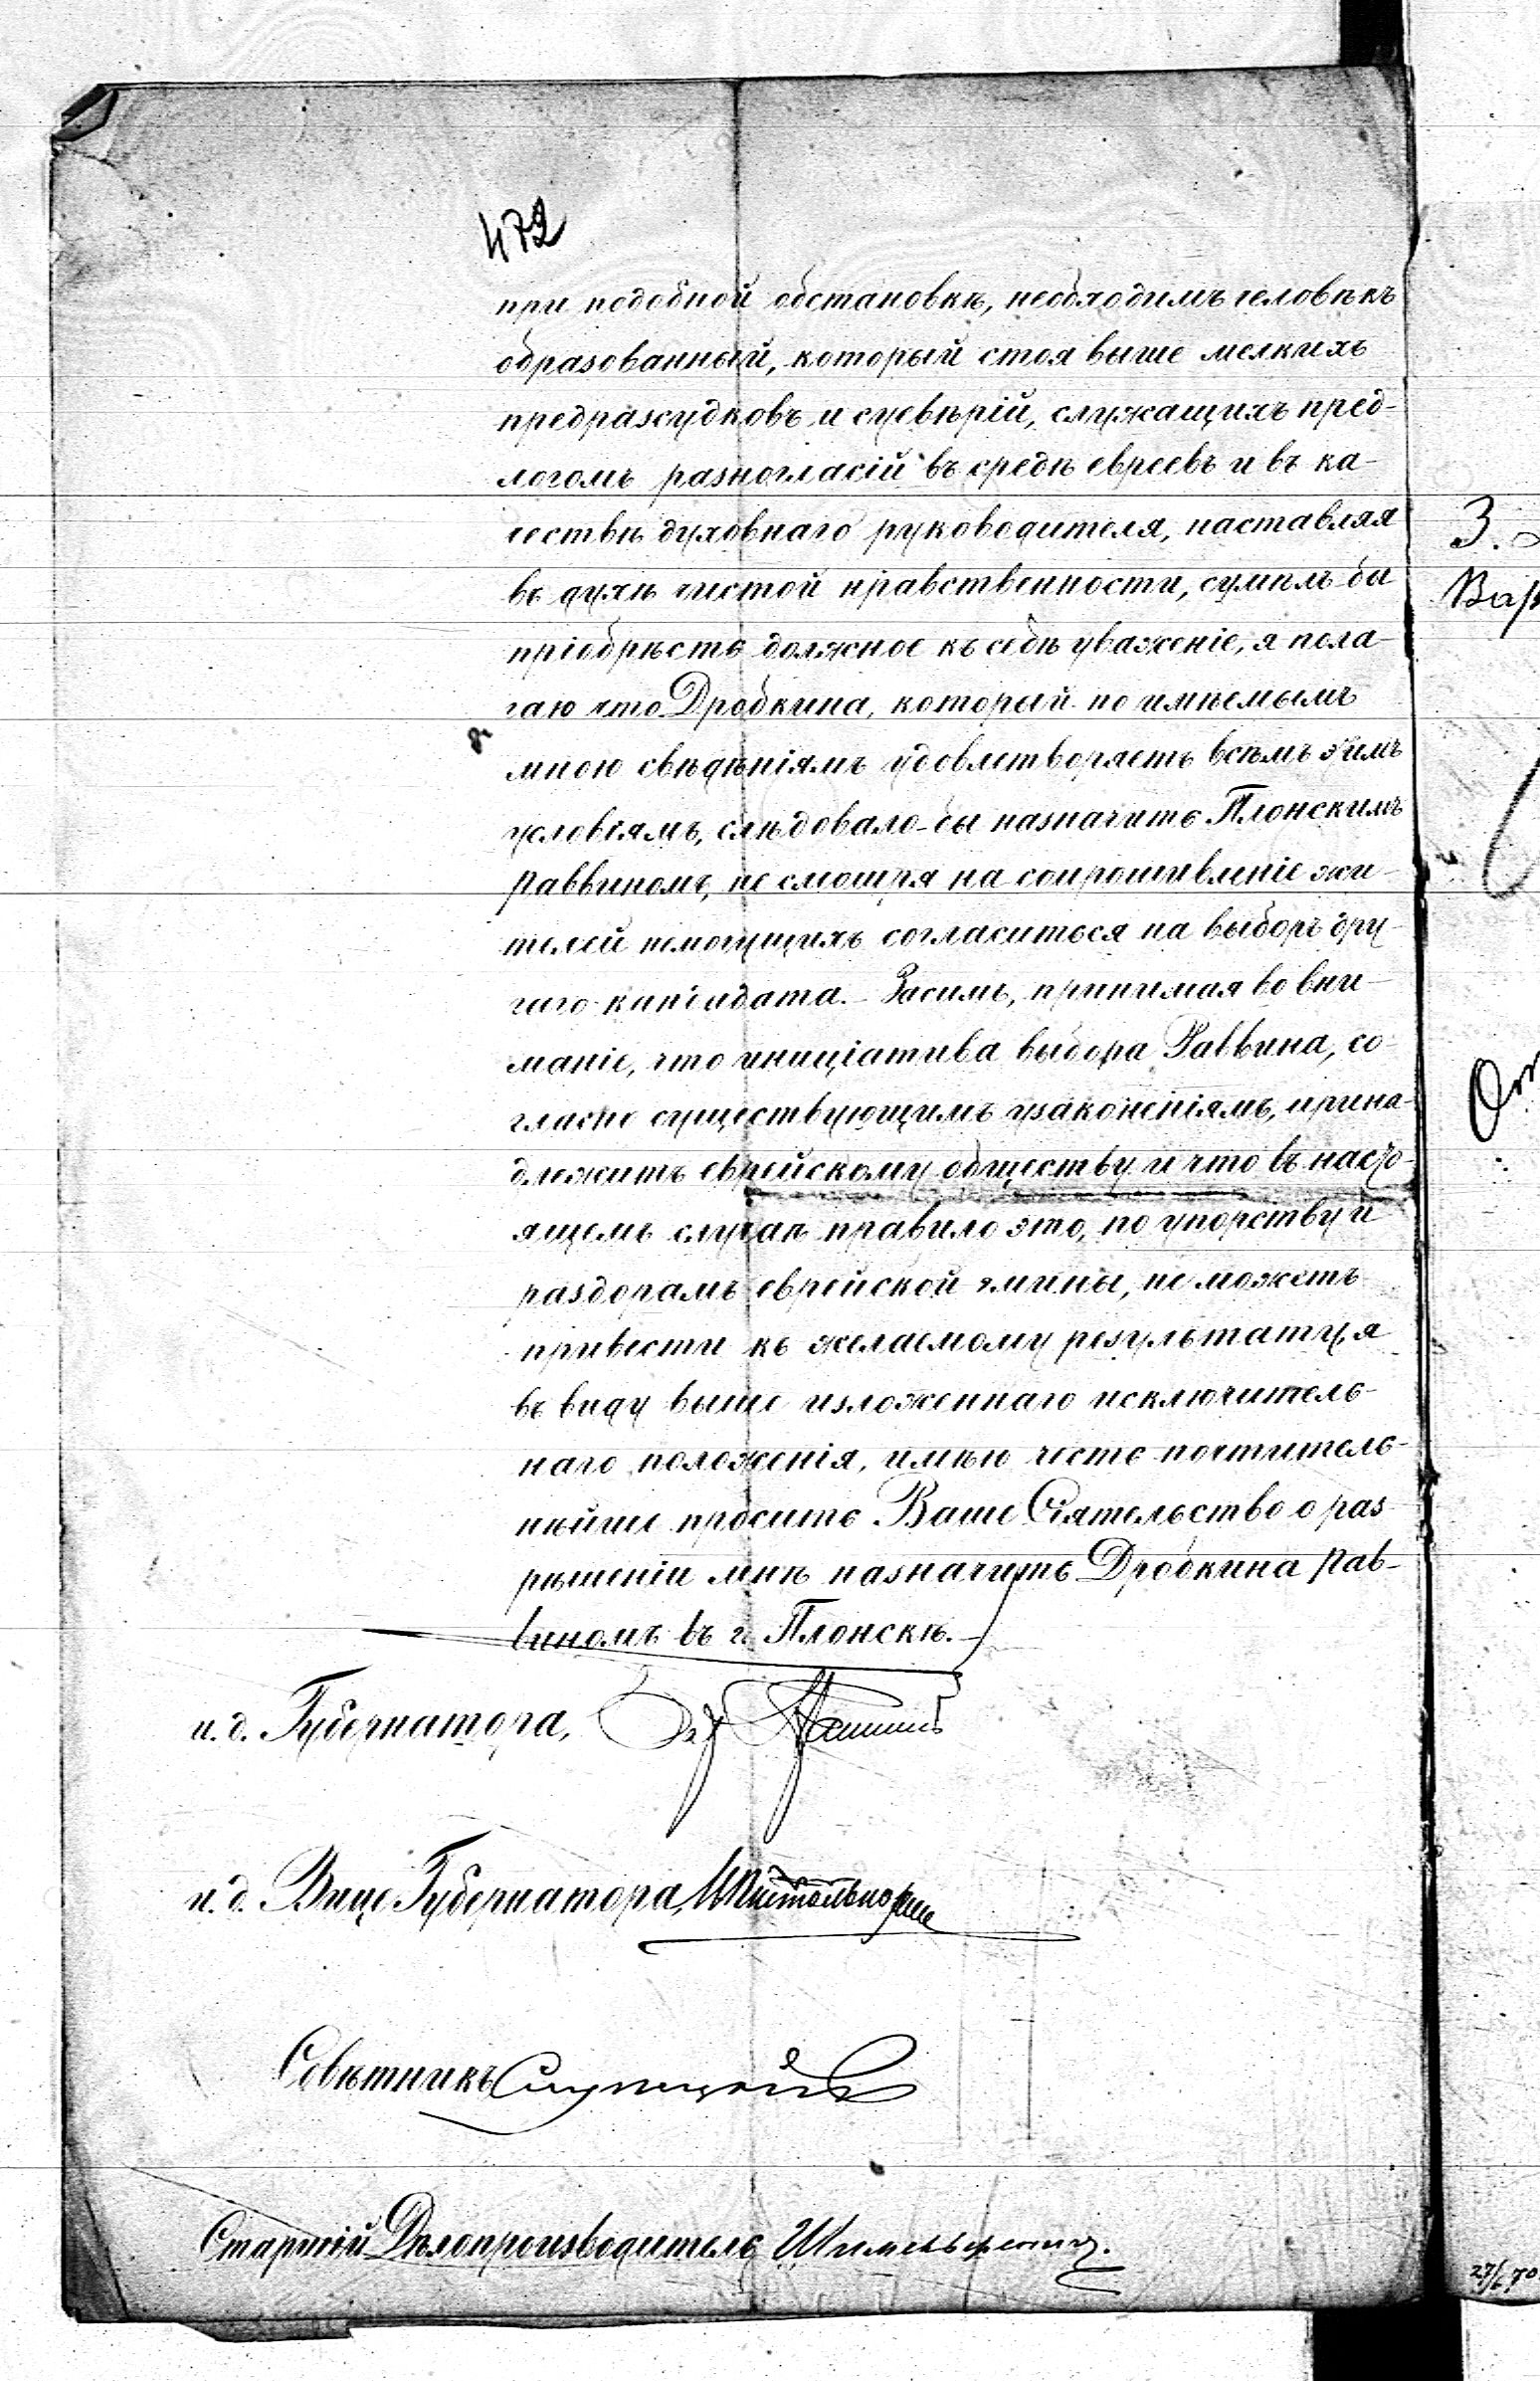 472
при подобной обстановкѣ, необходимъ человѣкъ
образованный, который стоя выше мелкихъ
предразсудковъ и суевѣрій, служащихъ пред-
логомъ разногласій въ средѣ евреевъ и въ ка-
чествѣ духовнаго руководителя, наставляя
въ духѣ чистой нравственности, сумѣлъ бы
пріобрѣсть должное къ себѣ уваженіе, я пола-
гаю что Дробкина, который по имѣемымъ
мною свѣдѣніямъ удовлетворяетъ всѣмъ этимъ
условіямъ, слѣдовало-бы назначить Плонскимъ
раввиномъ, не смотря на сопротивленіе жи-
телей немогущихъ согласиться на выборъ дру-
гаго кандидата. - Засимъ, принимая во вни-
маніе, что иниціатива выбора Раввина, со-
гласно существующимъ узаконеніямъ, прина-
длежитъ еврейскому обществу и что въ насто-
ящемъ случаѣ правило это, по упорству и
раздорамъ еврейской гмины, не можетъ
привести къ желаемому результату, я
въ виду выше изложеннаго исключитель-
наго положенія, имѣю честь почтитель-
нѣйше просить Ваше Сіятельство о раз-
рѣшеніи мнѣ назначить Дробкина Рав-
виномъ въ г. Плонскѣ. -
и. д. Губернатора,
и. д. Вице Губернатора,
Совѣтникъ
Старшій Дѣлопроизводитель
З.
Вар
От
27/6 70